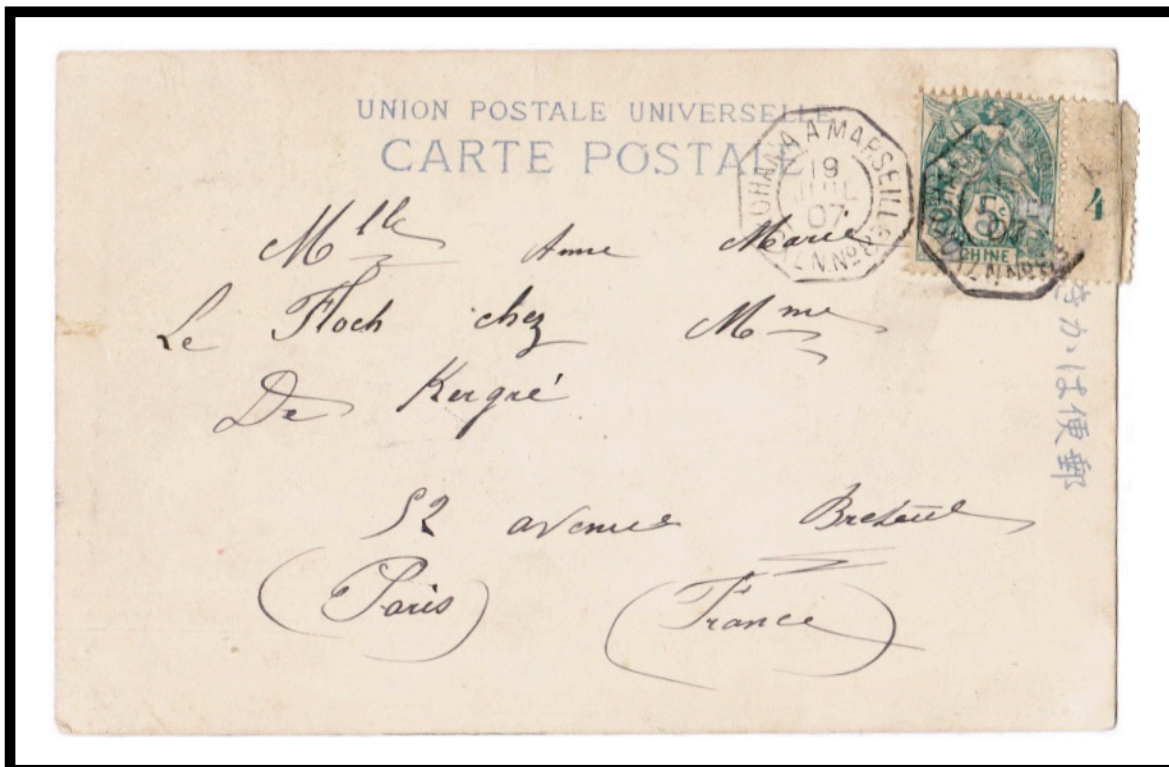 UNION POSTALE UNIVERSELLE
CARTE POSTALE
A MARSEILLE
L.N.Nº8
19
JUIL
07
5c
CHINE
4
郵便はかき
Mlle Anne Marie
Le Floch chez Mme
De Kergré
52 avenue Breteuil
(Paris) (France)